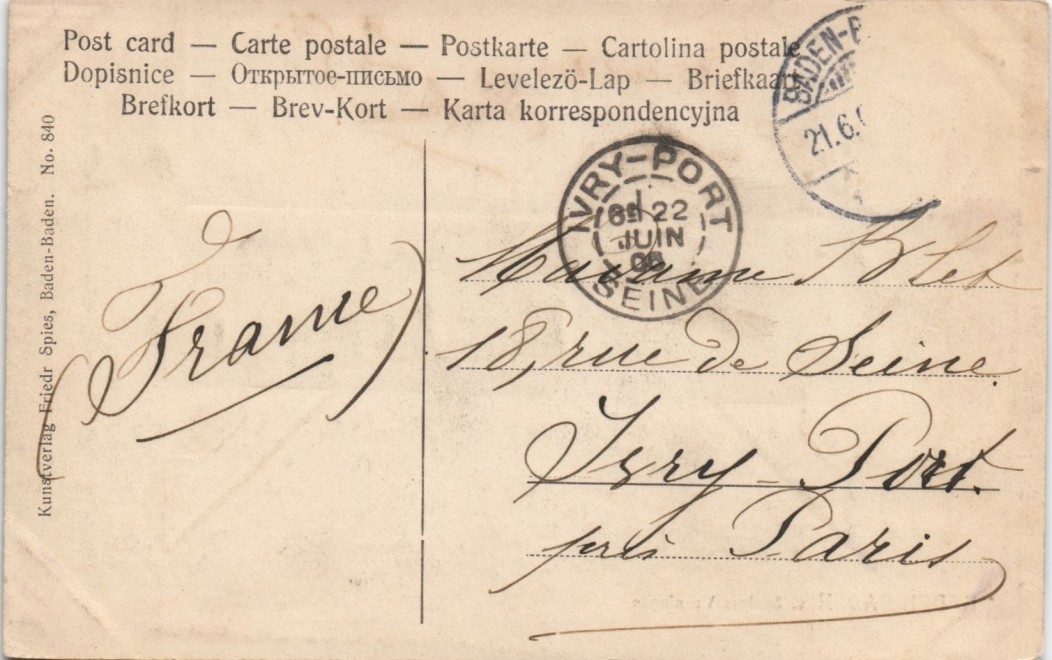 Post card — Carte postale — Postkarte — Cartolina postale
Dopisnice — Открытое-письмо — Levelezö-Lap — Briefkaart
Brefkort — Brev-Kort — Karta korrespondencyjna
BADEN-B
21.6.
IVRY-PORT
22
JUIN
SEINE
Kunstverlag Friedr Spies, Baden-Baden. No. 840
France
Madame Blet
18, rue de Seine.
Ivry-Port.
près Paris